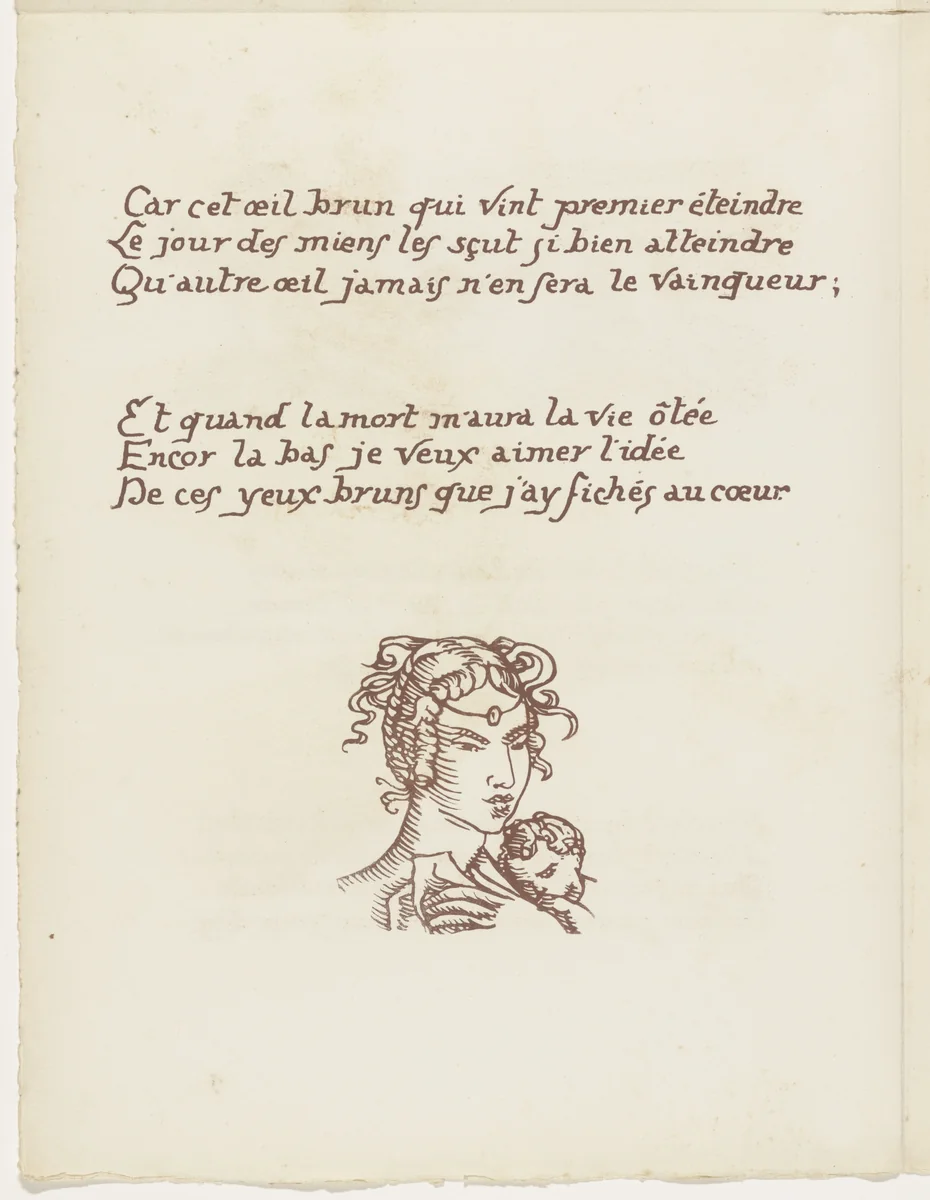 Car cet œil brun qui vint premier éteindre
Le jour des miens les sçut si bien atteindre
Qu'autre œil jamais n'en sera le vainqueur ;
Et quand la mort m'aura la vie ôtée
Encor la bas je veux aimer l'idée
De ces yeux bruns que j'ay fichés au cœur.